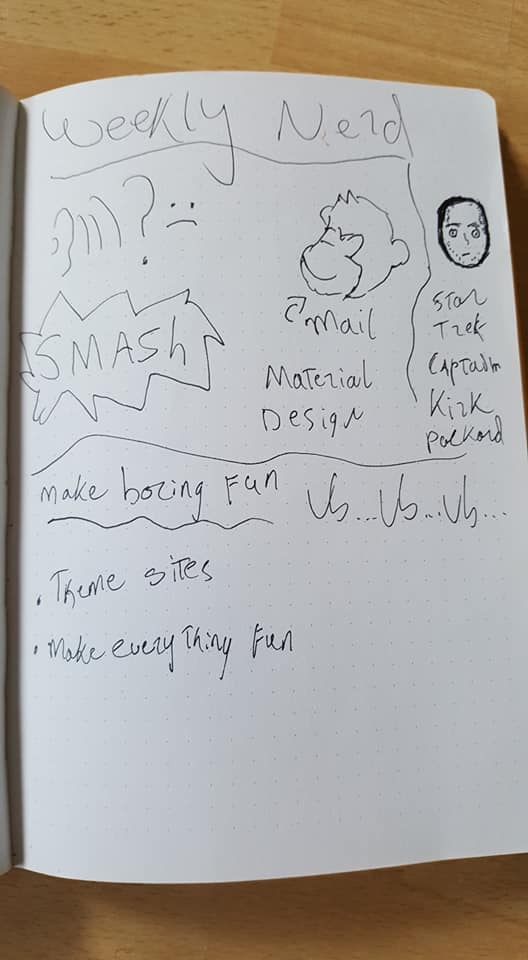 Weekly Nerd
?
SMASh
mail
Material
Design
Star
Trek
Captain
Kirk
Packard
make boring Fun
Uh...Uh...Uh...
• Theme sites
• Make everything Fun